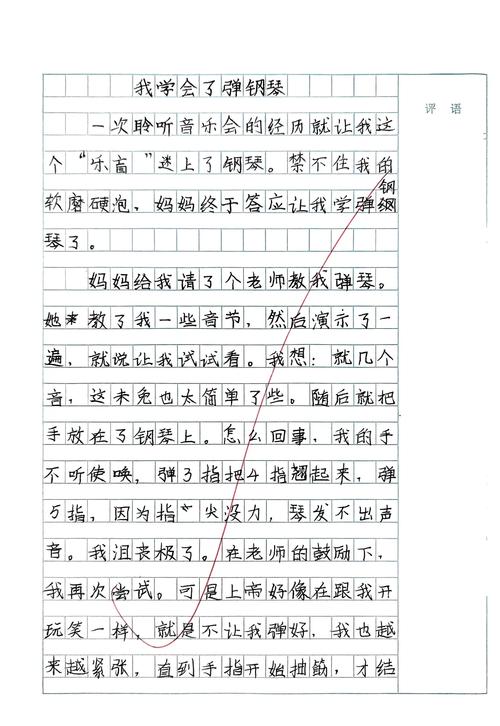 我学会了弹钢琴
评语
一次聆听音乐会的经历就让我这
个“乐盲”迷上了钢琴。禁不住我的
软磨硬泡，妈妈终于答应让我学弹钢
琴了。
妈妈给我请了个老师教我弹琴。
她教了我一些音节，然后演示了一
遍，就说让我试试看。我想：就几个
音，这未免也太简单了些。随后就把
手放在了钢琴上。怎么回事，我的手
不听使唤，弹3指把4指翘起来，弹
5指，因为指尖没力，琴发不出声
音。我沮丧极了。在老师的鼓励下，
我再次尝试。可是上帝好像在跟我开
玩笑一样，就是不让我弹好，我也越
来越紧张，直到手指开始抽筋，才结